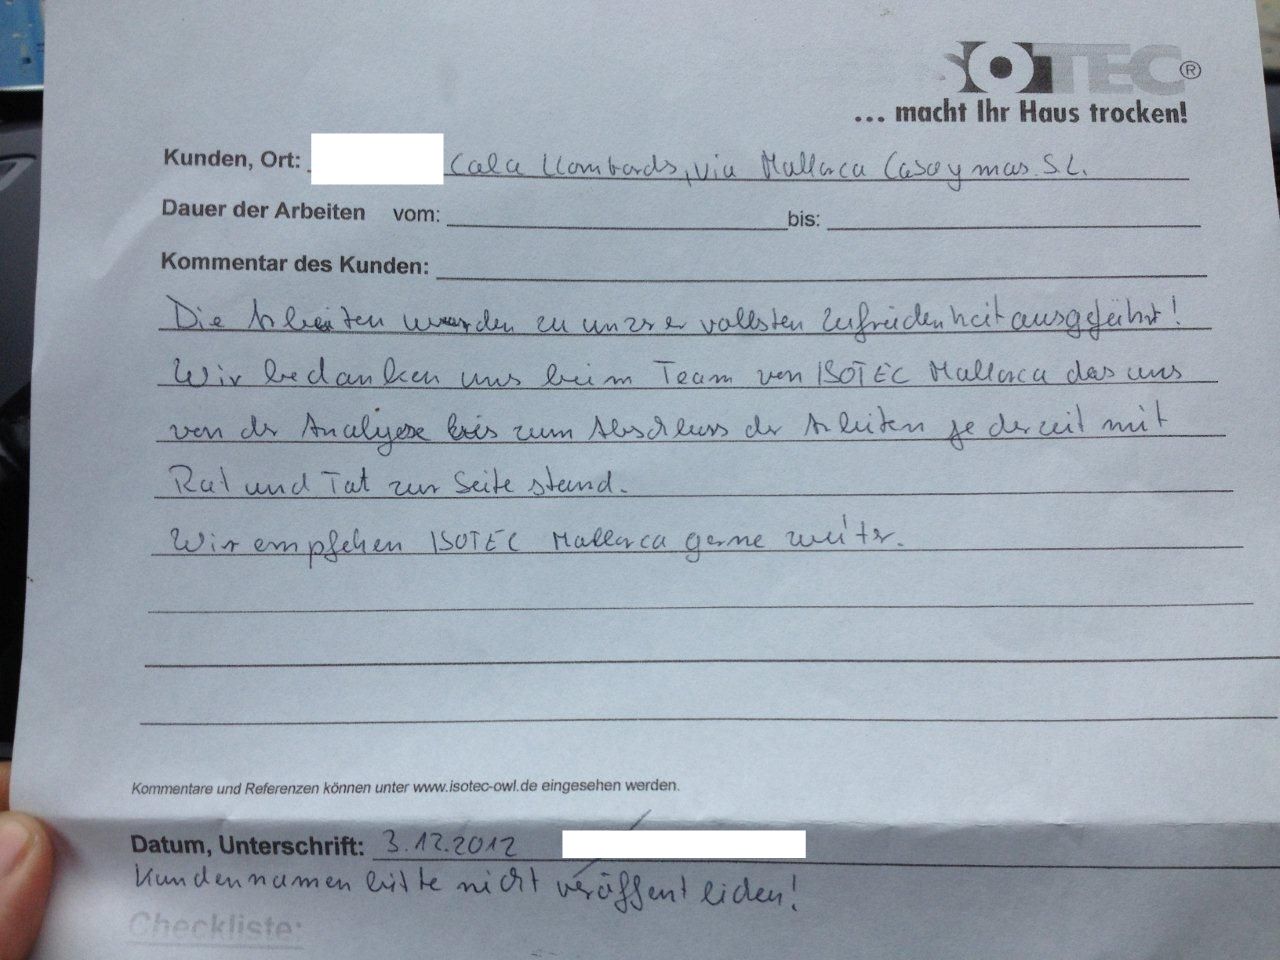 ISOTEC®
... macht Ihr Haus trocken!
Kunden, Ort: Cala Llombards, via Mallorca Casa y mas. S.L.
Dauer der Arbeiten vom: bis:
Kommentar des Kunden:
Die Arbeiten wurden zu unserer vollsten Zufriedenheit ausgeführt!
Wir bedanken uns beim Team von ISOTEC Mallorca das uns
von der Analyse bis zum Abschluss der Arbeiten jederzeit mit
Rat und Tat zur Seite stand.
Wir empfehen ISOTEC Mallorca gerne weiter.
Kommentare und Referenzen können unter www.isotec-owl.de eingesehen werden.
Datum, Unterschrift: 3.12.2012
Kundennamen bitte nicht veröffentlichen!
Checkliste: